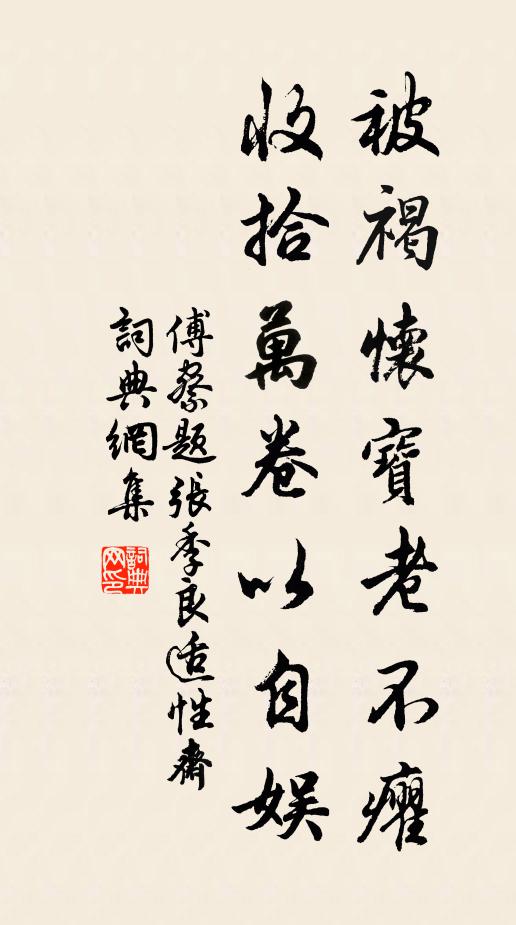 被褐懷寶老不癯
收拾萬卷以自娱
傅察題張季良适性齋
詞典網集
詞典網印